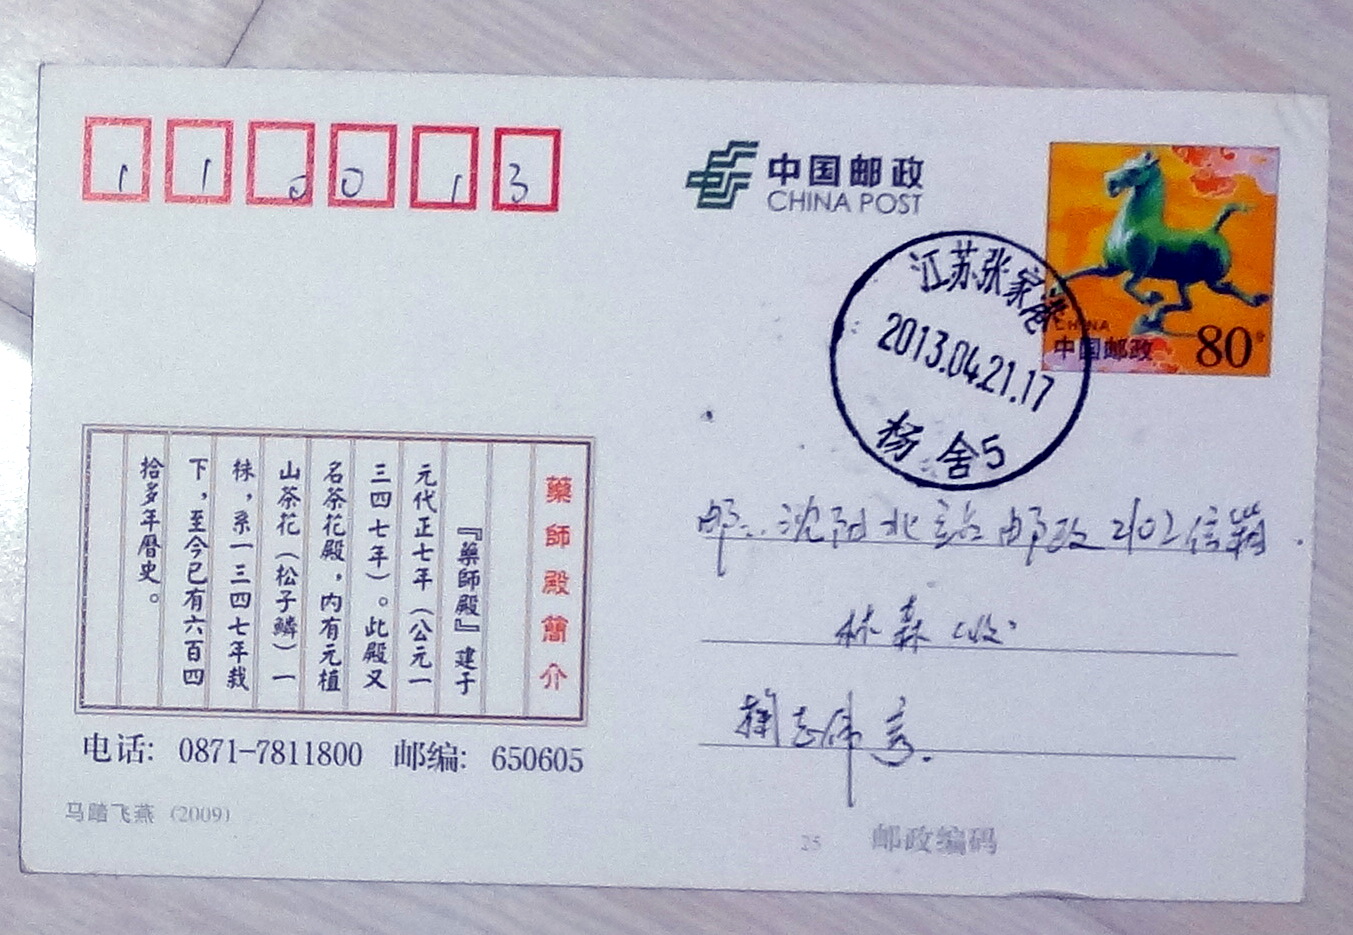 110013
中国邮政
CHINA POST
江苏张家港
2013.04.21.17
杨舍5
CHINA
中国邮政
80分
邮: 沈阳北站邮政2102信箱.
林森(收)
志伟寄.
藥師殿簡介
『藥師殿』建于
元代正七年（公元一
三四七年）。此殿又
名茶花殿，内有元植
山茶花（松子鳞）一
株，系一三四七年栽
下，至今已有六百四
拾多年曆史。
电话: 0871-7811800 邮编: 650605
马踏飞燕 (2009)
25 邮政编码